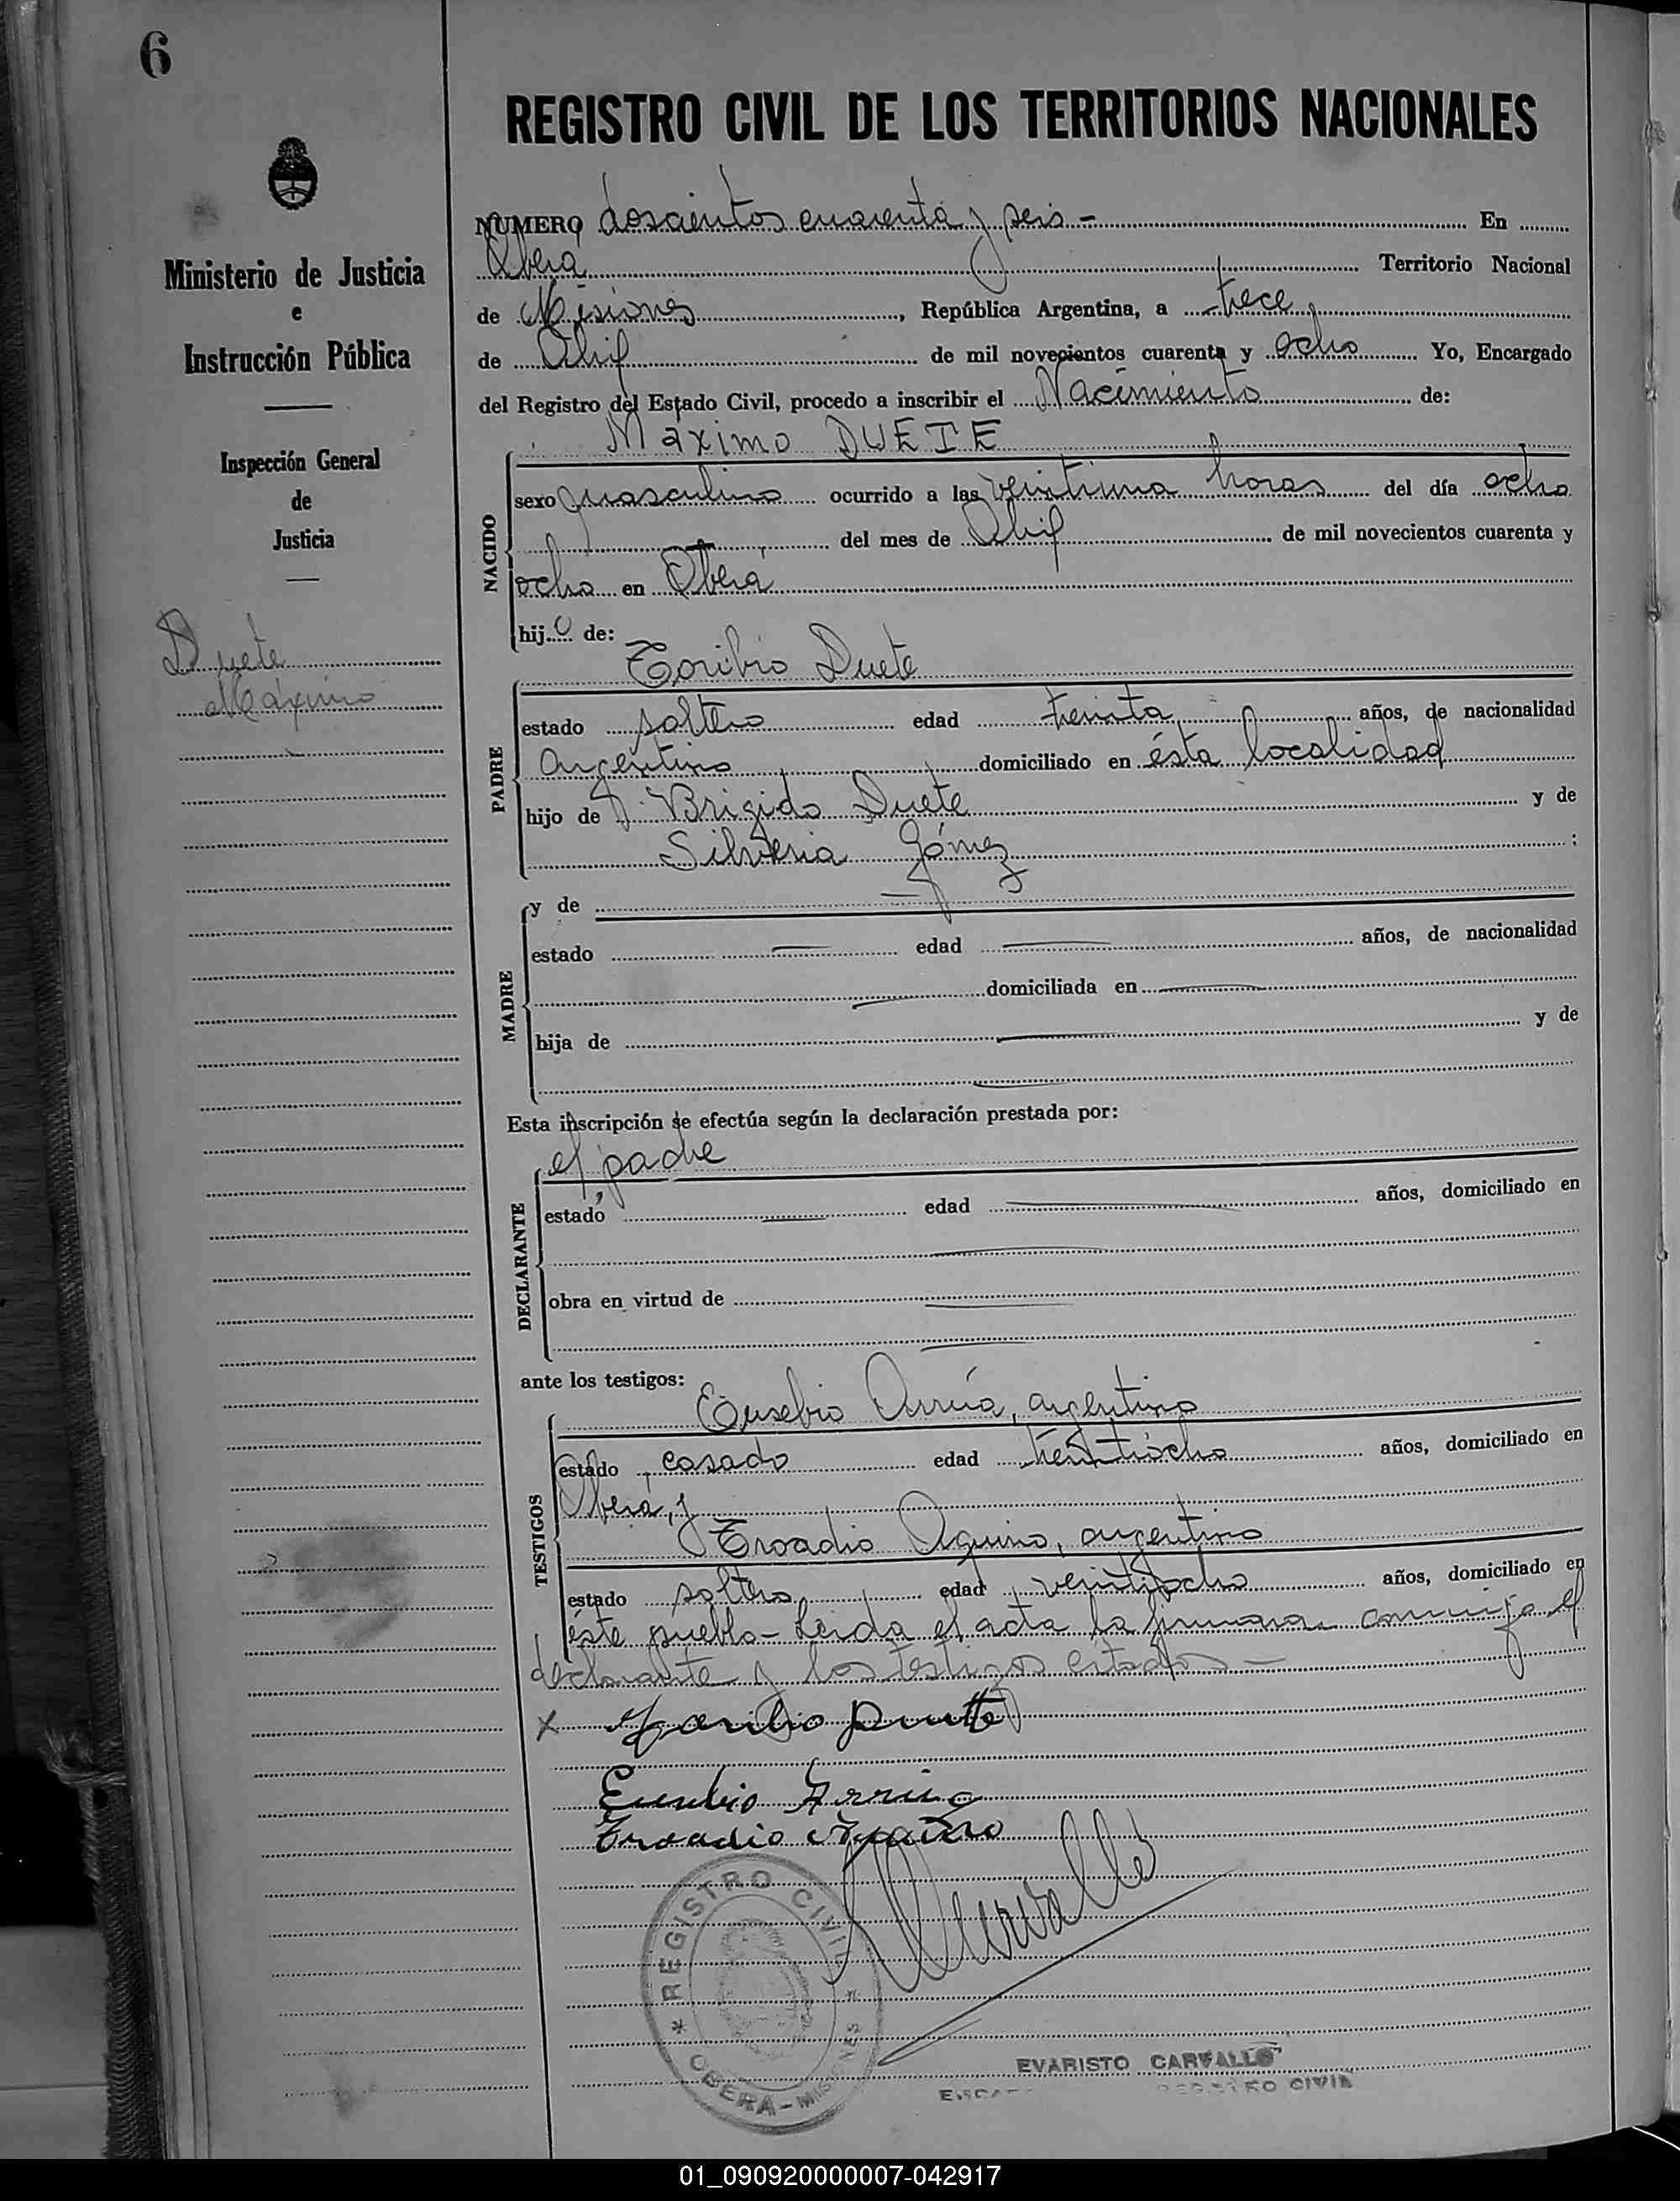 6
REGISTRO CIVIL DE LOS TERRITORIOS NACIONALES
Ministerio de Justicia
e
Instrucción Pública
Inspección General
de
Justicia
Duete
Máximo
NUMERO doscientos cuarenta y seis - En
Oberá Territorio Nacional
de Misiones, República Argentina, a trece
de Abril de mil novecientos cuarenta y ocho Yo, Encargado
del Registro del Estado Civil, procedo a inscribir el Nacimiento de:
Máximo DUETE
NACIDO
sexo masculino ocurrido a las veintiuna horas del día ocho
del mes de Abril de mil novecientos cuarenta y
ocho en Oberá
hijo de:
Toribio Duete
PADRE
estado soltero edad treinta años, de nacionalidad
argentino domiciliado en ésta localidad
hijo de D. Brigido Duete y de
Silveria Gómez ;
MADRE
y de
estado edad años, de nacionalidad
domiciliada en
hija de y de
Esta inscripción se efectúa según la declaración prestada por:
el padre
DECLARANTE
estado edad años, domiciliado en
obra en virtud de
ante los testigos:
Eusebio Arrúa, argentino
TESTIGOS
estado casado edad treintiocho años, domiciliado en
Oberá, y
Troadio Aquino, argentino
estado soltero edad veintiocho años, domiciliado en
éste pueblo - Leida el acta la firmaran conmigo el
declarante y los testigos citados -
x Toribio Duette
Eusebio Arrúa
Troadio Aquino
REGISTRO CIVIL
* OBERÁ - MISIONES *
EVARISTO CARVALLO
REGISTRO CIVIL
01_090920000007-042917